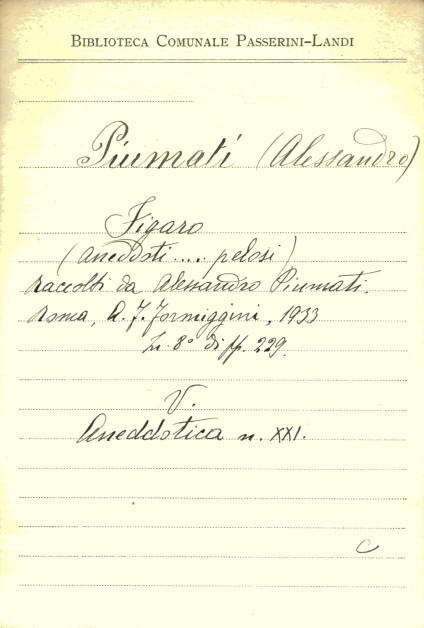 BIBLIOTECA COMUNALE PASSERINI-LANDI
Piumati (Alessandro)
Figaro
(aneddoti .... pelosi)
raccolti da Alessandro Piumati.
Roma, A. F. Formiggini, 1933
In 8° di pp. 229.
V.
Aneddotica n. XXI.
C